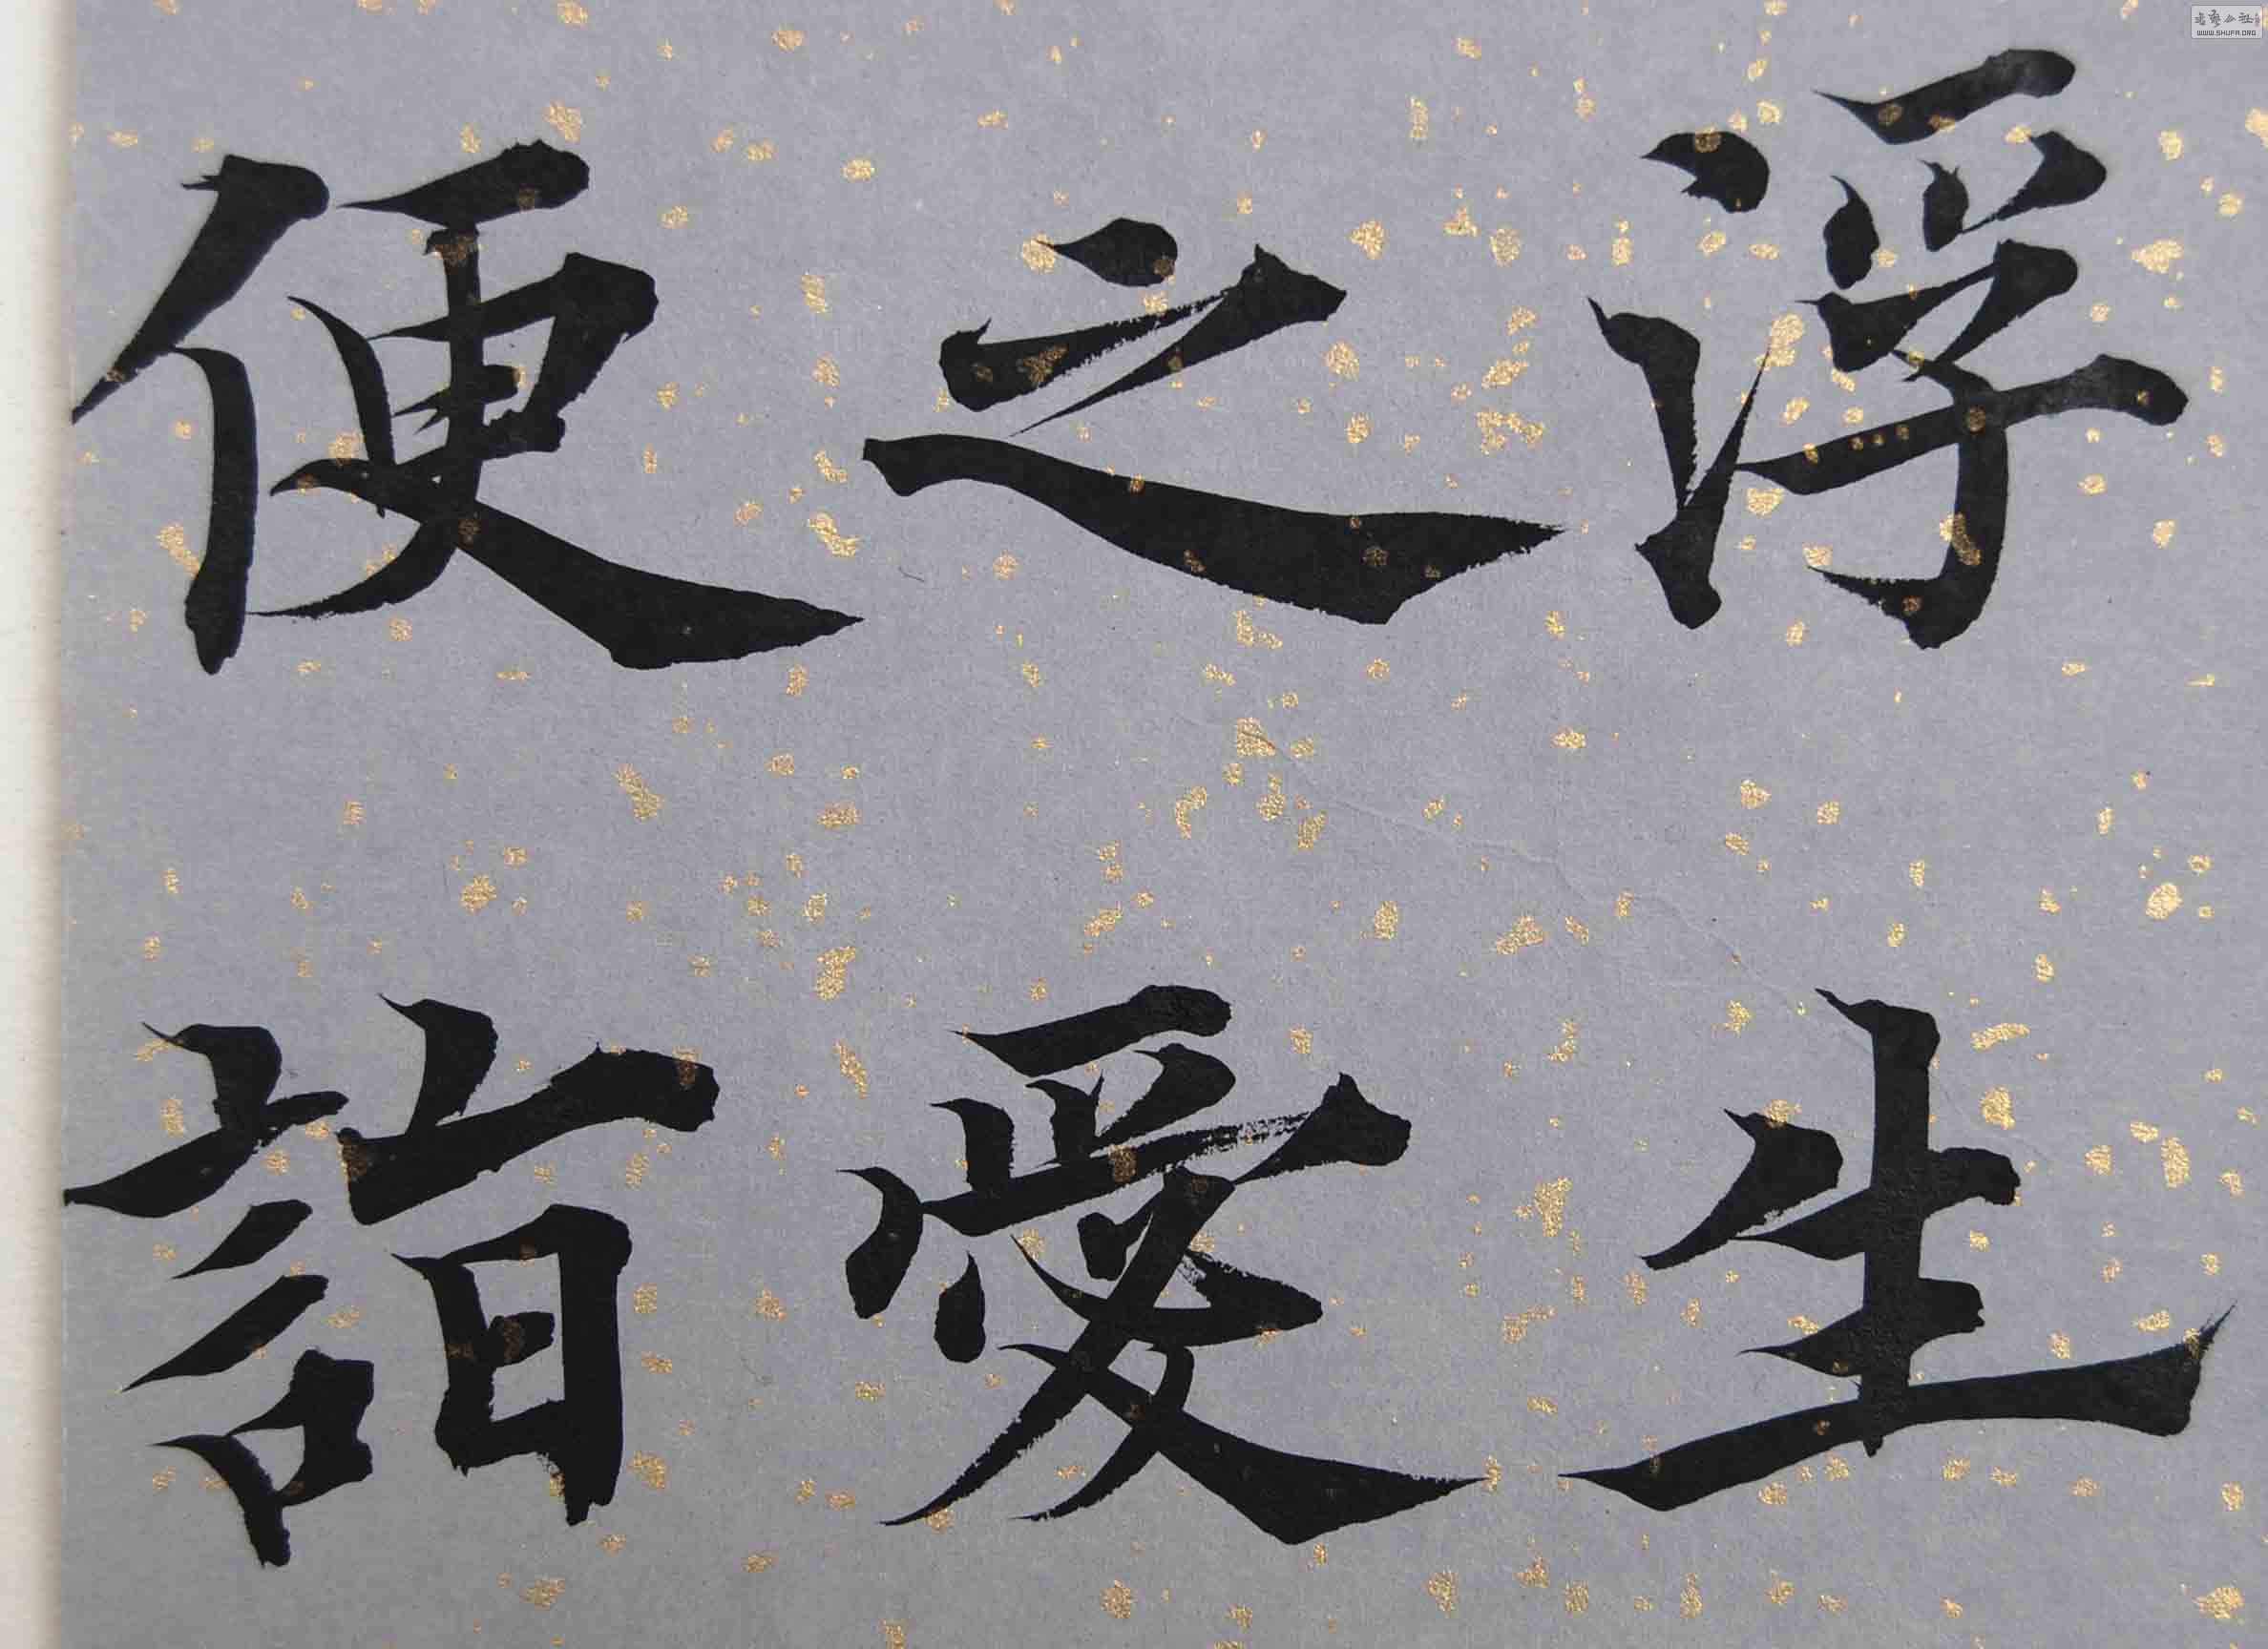 浮生
之愛
便詣
書藝公社
WWW.SHUFA.ORG